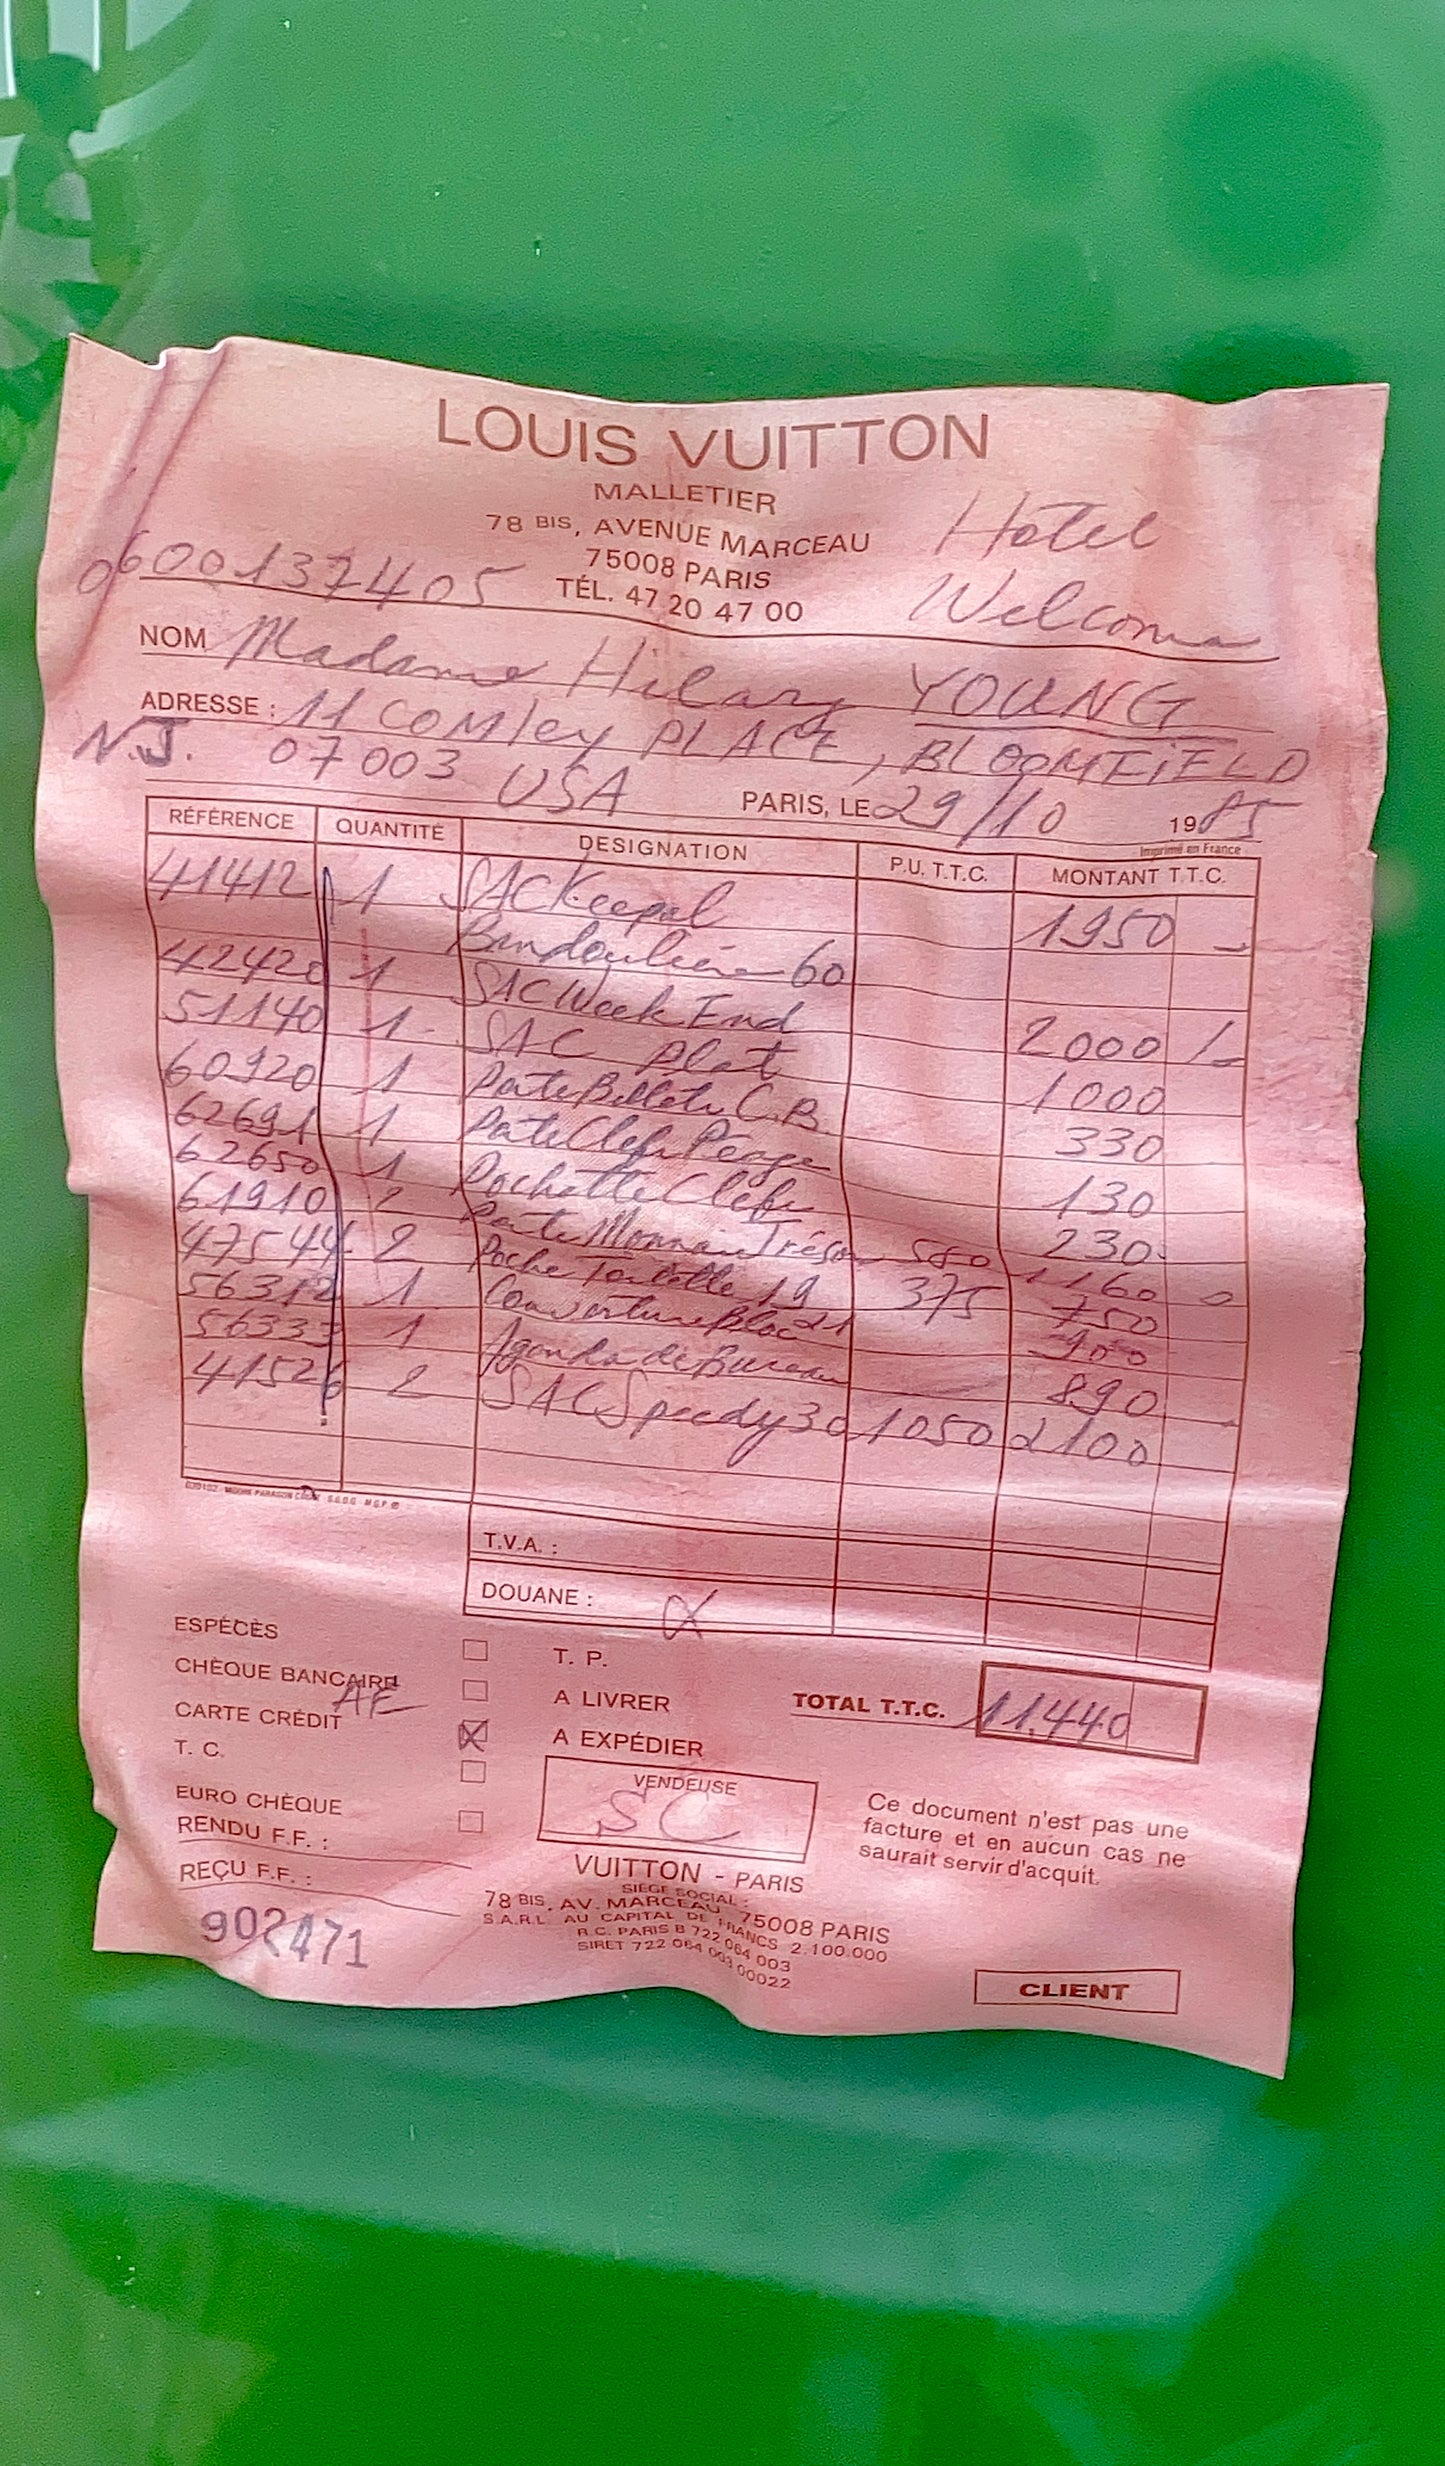 LOUIS VUITTON
MALLETIER
78 BIS, AVENUE MARCEAU
75008 PARIS
TÉL. 47 20 47 00
Hotel
Welcome
06001337405
NOM Madame Hilary YOUNG
ADRESSE : 11 COMley PLACE, BLOOMFIELD
N.J. 07003 USA
PARIS, LE 29/10 1985
Imprimé en France
RÉFÉRENCE QUANTITÉ DESIGNATION P.U. T.T.C. MONTANT T.T.C.
41412 1 SAC Keepal 1950 -
Bandoulière 60
42420 1 SAC Week End 2000 /-
51140 1 SAC Plat 1000
60920 1 Porte Billets C.B. 330
62691 1 Porte Clefs Péage 130
62650 1 Pochette Clefs 230
61910 2 Porte Monnaie Trésor 580 1160
47544 2 Poche Toilette 19 375 750
56312 1 Couverture Bloc 21 900
56333 1 Agenda de Bureau 890
41526 2 SAC Speedy 30 1050 2100
T.V.A. :
DOUANE :
ESPÉCÈS
CHÈQUE BANCAIRE
CARTE CRÉDIT AE
T. C.
EURO CHÈQUE
RENDU F.F. :
REÇU F.F. :
902471
T. P.
A LIVRER
A EXPÉDIER
TOTAL T.T.C. 11.440
VENDEUSE
SC
Ce document n'est pas une
facture et en aucun cas ne
saurait servir d'acquit.
VUITTON - PARIS
SIÈGE SOCIAL :
78 BIS, AV. MARCEAU, 75008 PARIS
S.A.R.L. AU CAPITAL DE FRANCS 2.100.000
R.C. PARIS B 722 064 003
SIRET 722 064 003 00022
CLIENT